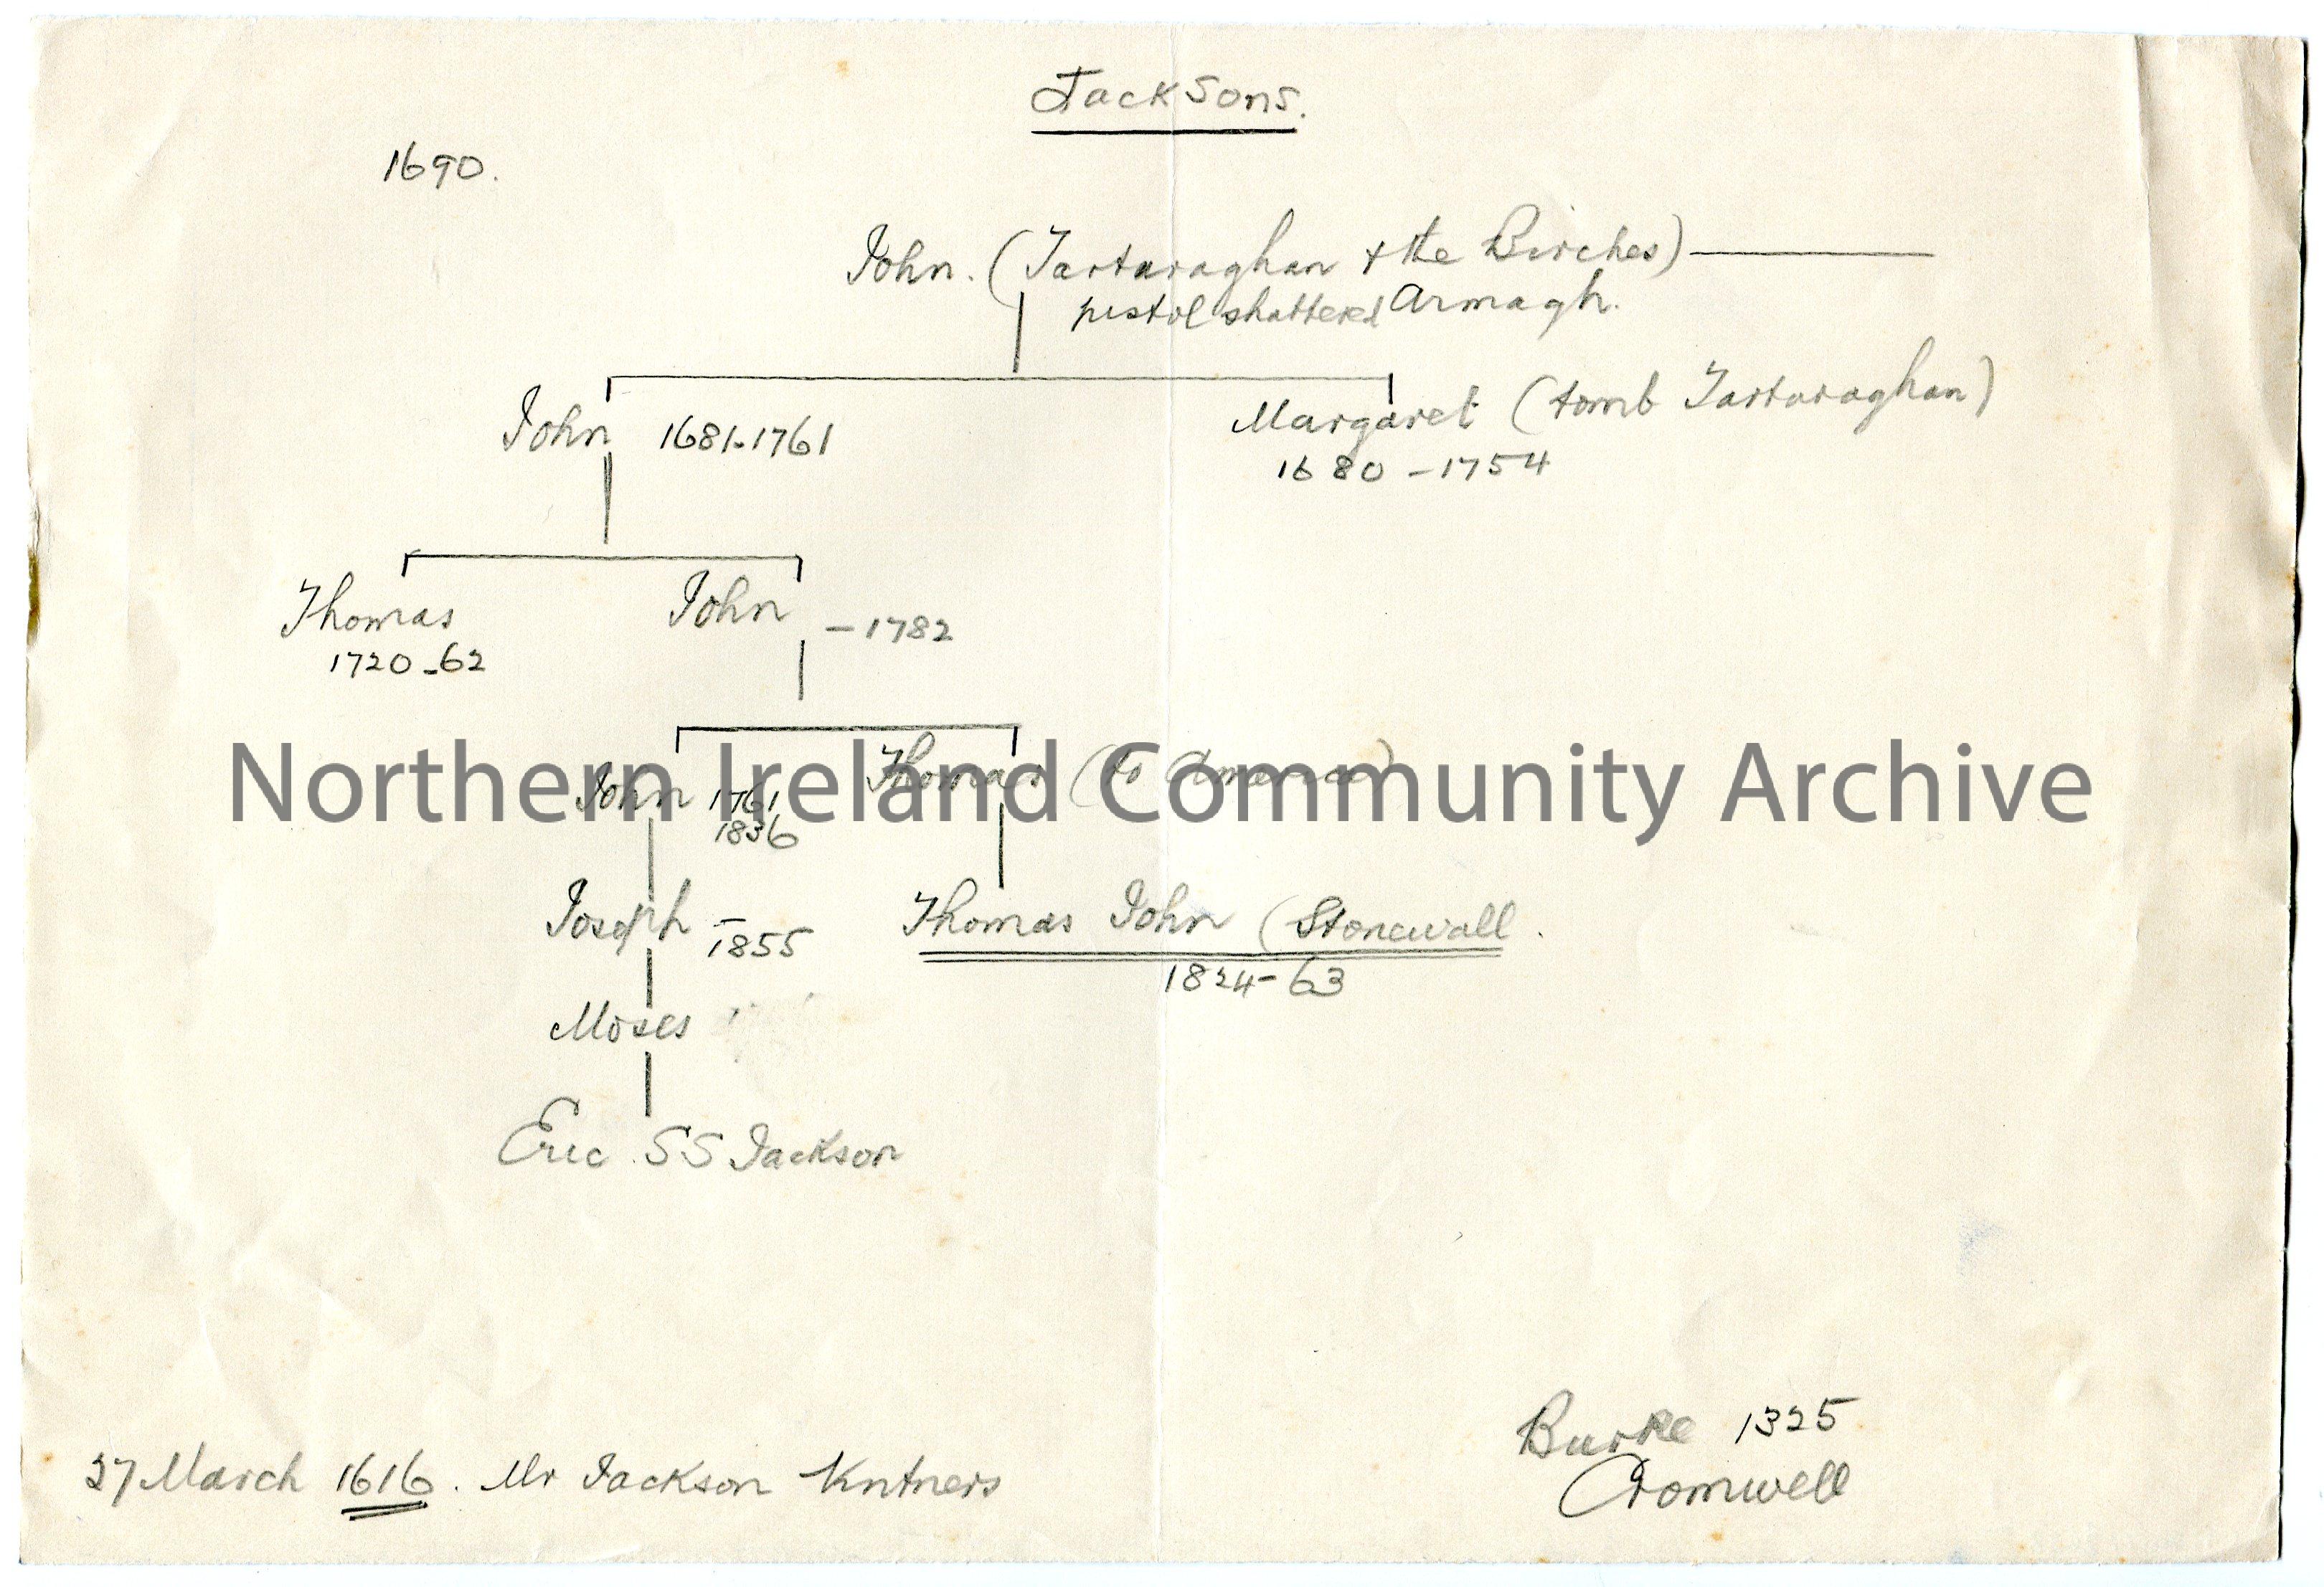 Jacksons.
1690.
John. (Tartaraghan & the Birches)
pistol shattered Armagh.
John 1681-1761
Margaret (tomb Tartaraghan)
1680-1754
Thomas
1720-62
John -1782
John 1761
1836
Thomas (to America)
Northern Ireland Community Archive
Joseph -
1855
Thomas John (Stonewall.
1824-63
Moses
Eric SS Jackson
27 March 1616. Mr Jackson
Burke 1325
Cromwell